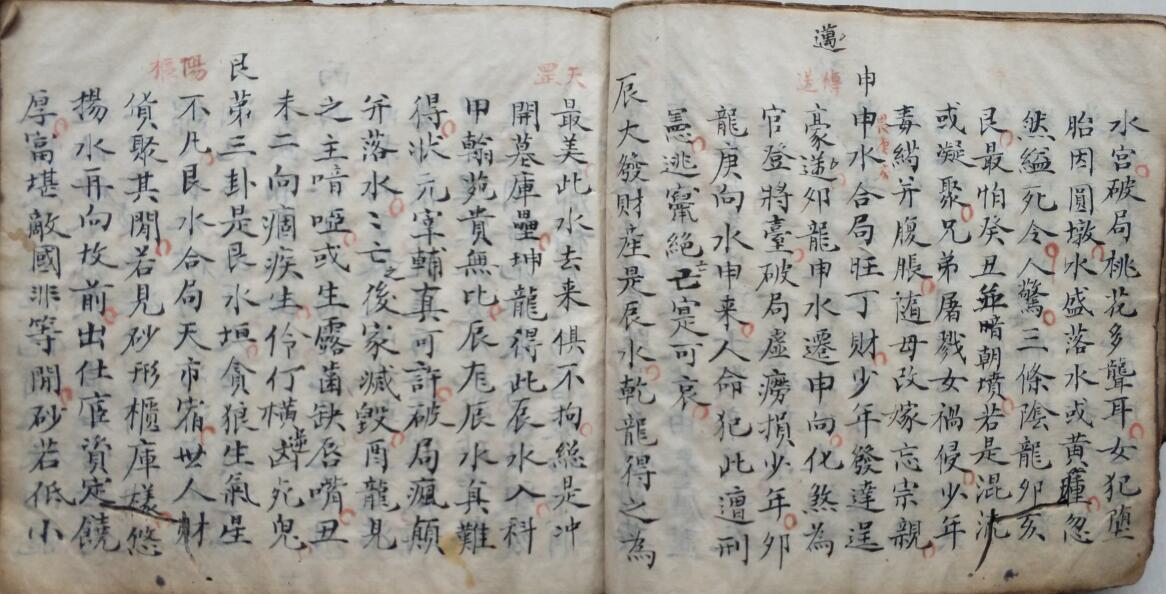 水宮破局桃花多聾耳女犯墮
胎因圓墩水盛落水或黄腫忽
然縊死令人驚三條陰龍卯亥
艮最怕癸丑並暗朝墳若是混流
或凝聚兄弟屠戮女禍侵少年
毒葯并腹脹隨母改嫁忘宗親
申
申水合局旺丁財少年發達逞
邁
傳送
豪逆卯龍申水遷申向化煞為
官登將臺破局虛癆損少年卯
龍庚向水申来人命犯此遭刑
憲逃竄絕亡寔可哀
辰大發財産是辰水乾龍得之為
天罡
最美此水去来俱不拘総是冲
開墓庫壘坤龍得此辰水入科
甲翰苑貴無比辰龙辰水真難
得状元宰輔真可許破局瘋顛
并落水亡之後家滅毀酉龍見
之主喑啞或生露齒缺唇嘴丑
未二向痼疾生伶仃橫死鬼
艮第三卦是艮水垣貪狼生氣星
陽樞
不凡艮水合局天市宿世人財
貨聚其間若見砂形櫃庫樣悠
揚水再向坟前出仕宦資定饒
厚富堪敵國非等閒砂若低小